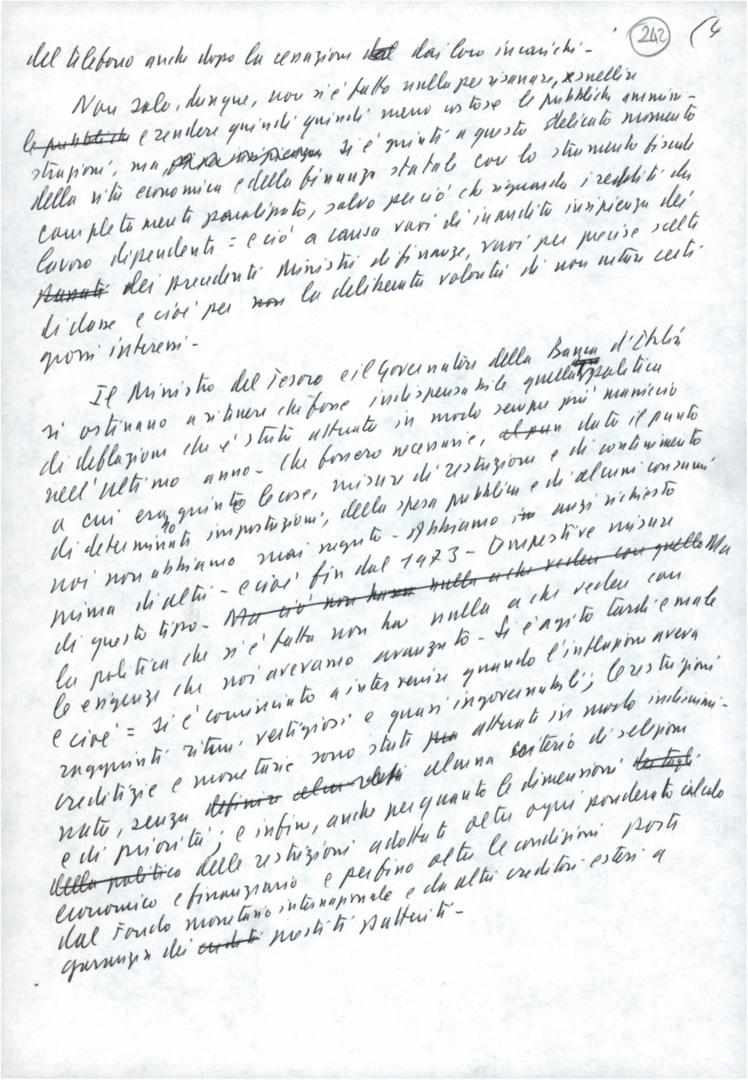 242 (4
del telefono anche dopo la cessazione dal dai loro incarichi -
Non solo, dunque, non si è fatto nulla per risanare, snellire
le pubbliche e rendere quindi quindi meno costose le pubbliche ammini-
strazioni, ma si è giunti a questo delicato momento
della vita economica e della finanza statale con lo strumento fiscale
completamente paralizzato, salvo per ciò che riguarda i redditi da
lavoro dipendente = e ciò a causa vuoi di inaudita insipienza dei
passati dei precedenti Ministri di finanze, vuoi per precise scelte
di classe e cioè per non la deliberata volontà di non urtare certi
grossi interessi -
Il Ministro del Tesoro e il Governatore della Banca d'Italia
si ostinano a ritenere che fosse indispensabile quella politica
di deflazione che è stata attuata in modo sempre più massiccio
nell'ultimo anno - Che fossero necessarie, dato il punto
a cui eran giunte le cose, misure di restrizione e di contenimento
di determinate importazioni, della spesa pubblica e di alcuni consumi
noi non abbiamo mai negato - Abbiamo in anzi richiesto
prima di altri - e cioè fin dal 1973 - tempestive misure
di questo tipo - Ma ciò non ha nulla a che vedere con quello Ma
la politica che si è fatta non ha nulla a che vedere con
le esigenze che noi avevamo avanzato - Si è agito tardi e male
e cioè = si è cominciato a intervenire quando l'inflazione aveva
raggiunti ritmi vertiginosi e quasi ingovernabili; le restrizioni
creditizie e monetarie sono state attuate in modo indiscrimi-
nato, senza definire alcun alcuna criterio di selezione
e di priorità; e infine, anche per quanto le dimensioni dei tagli
della politica delle restrizioni adottate oltre ogni ponderato calcolo
economico e finanziario e perfino oltre le condizioni poste
dal Fondo monetario internazionale e da altri creditori esteri a
garanzia dei crediti prestiti pattuiti -